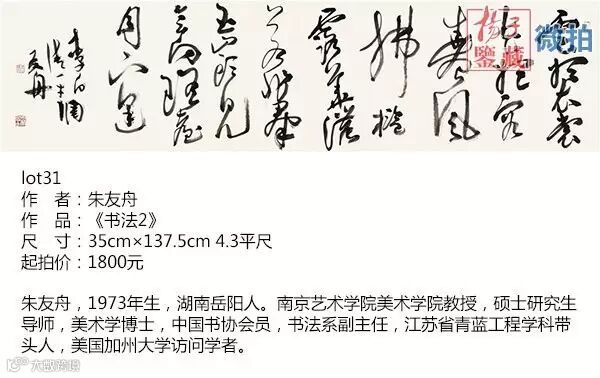 雲想衣裳
花想容
春風
拂檻
露華濃
若非群
玉山頭見
會向瑤台
月下逢
李白
清平調
友舟
揚子
鑒藏
微拍
lot31
作 者：朱友舟
作 品：《书法2》
尺 寸：35cm×137.5cm 4.3平尺
起拍价：1800元
朱友舟，1973年生，湖南岳阳人。南京艺术学院美术学院教授，硕士研究生
导师，美术学博士，中国书协会员，书法系副主任，江苏省青蓝工程学科带
头人，美国加州大学访问学者。
大数跨境